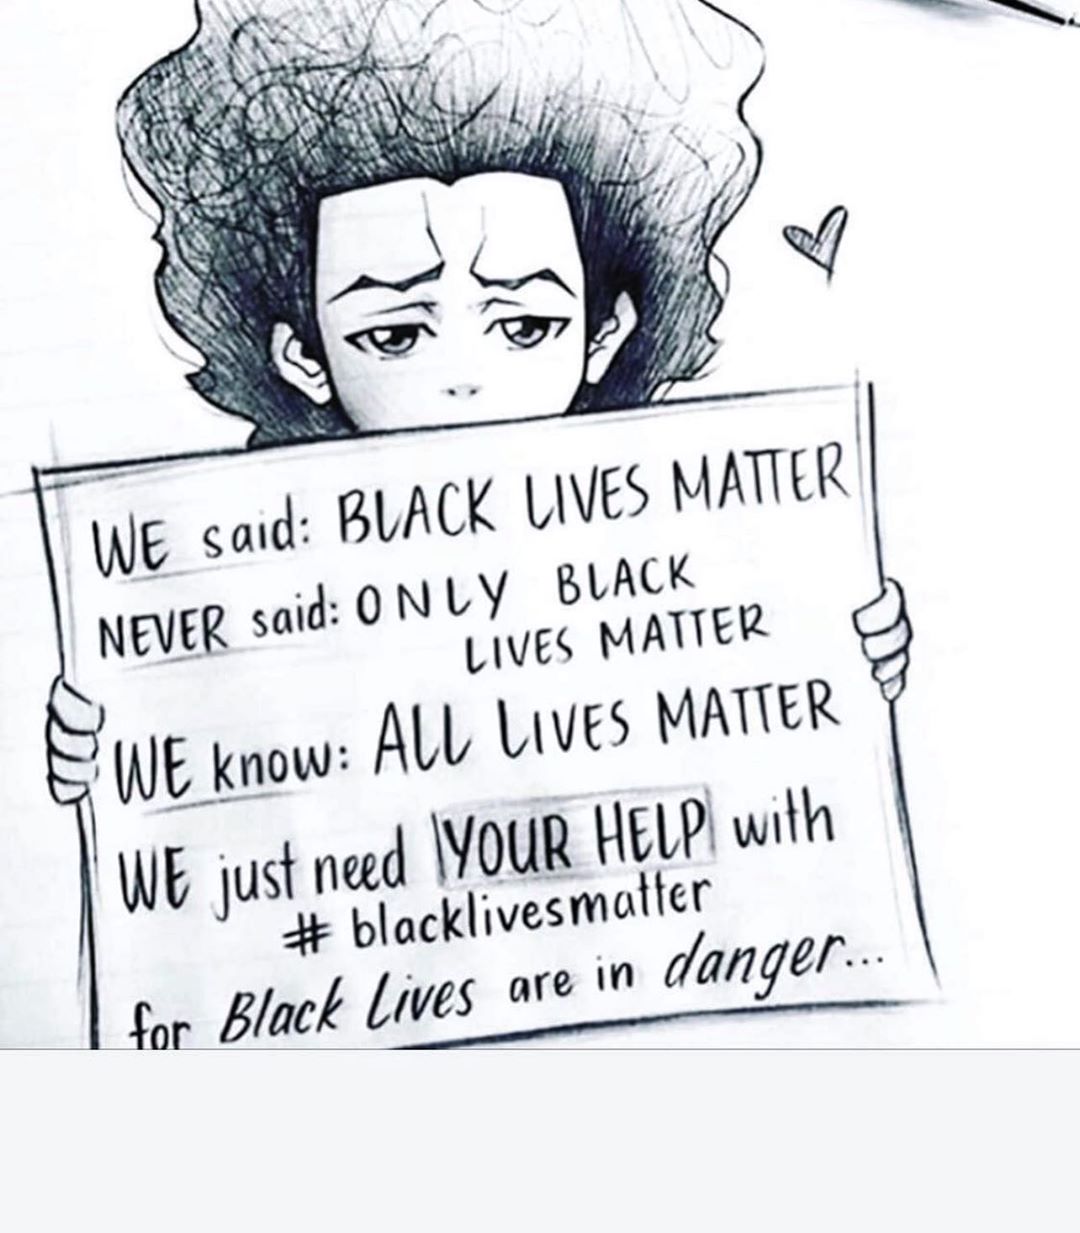 WE said: BLACK LIVES MATTER
NEVER said: ONLY BLACK
LIVES MATTER
WE know: ALL LIVES MATTER
WE just need YOUR HELP with
# blacklivesmatter
for Black Lives are in danger...